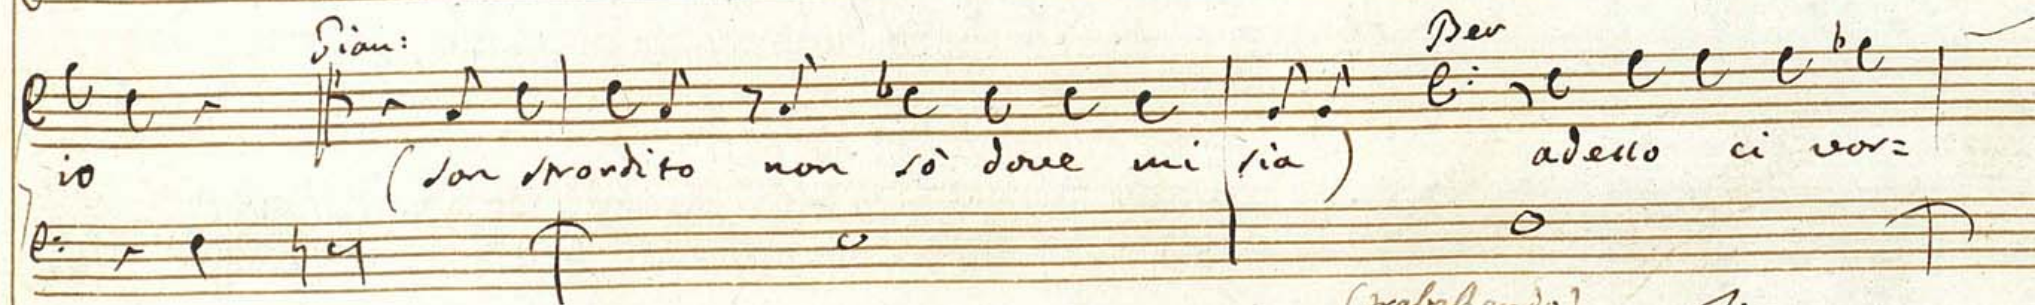 Gian: Ber
io (son stordito non sò dove mi sia) adesso ci vor=